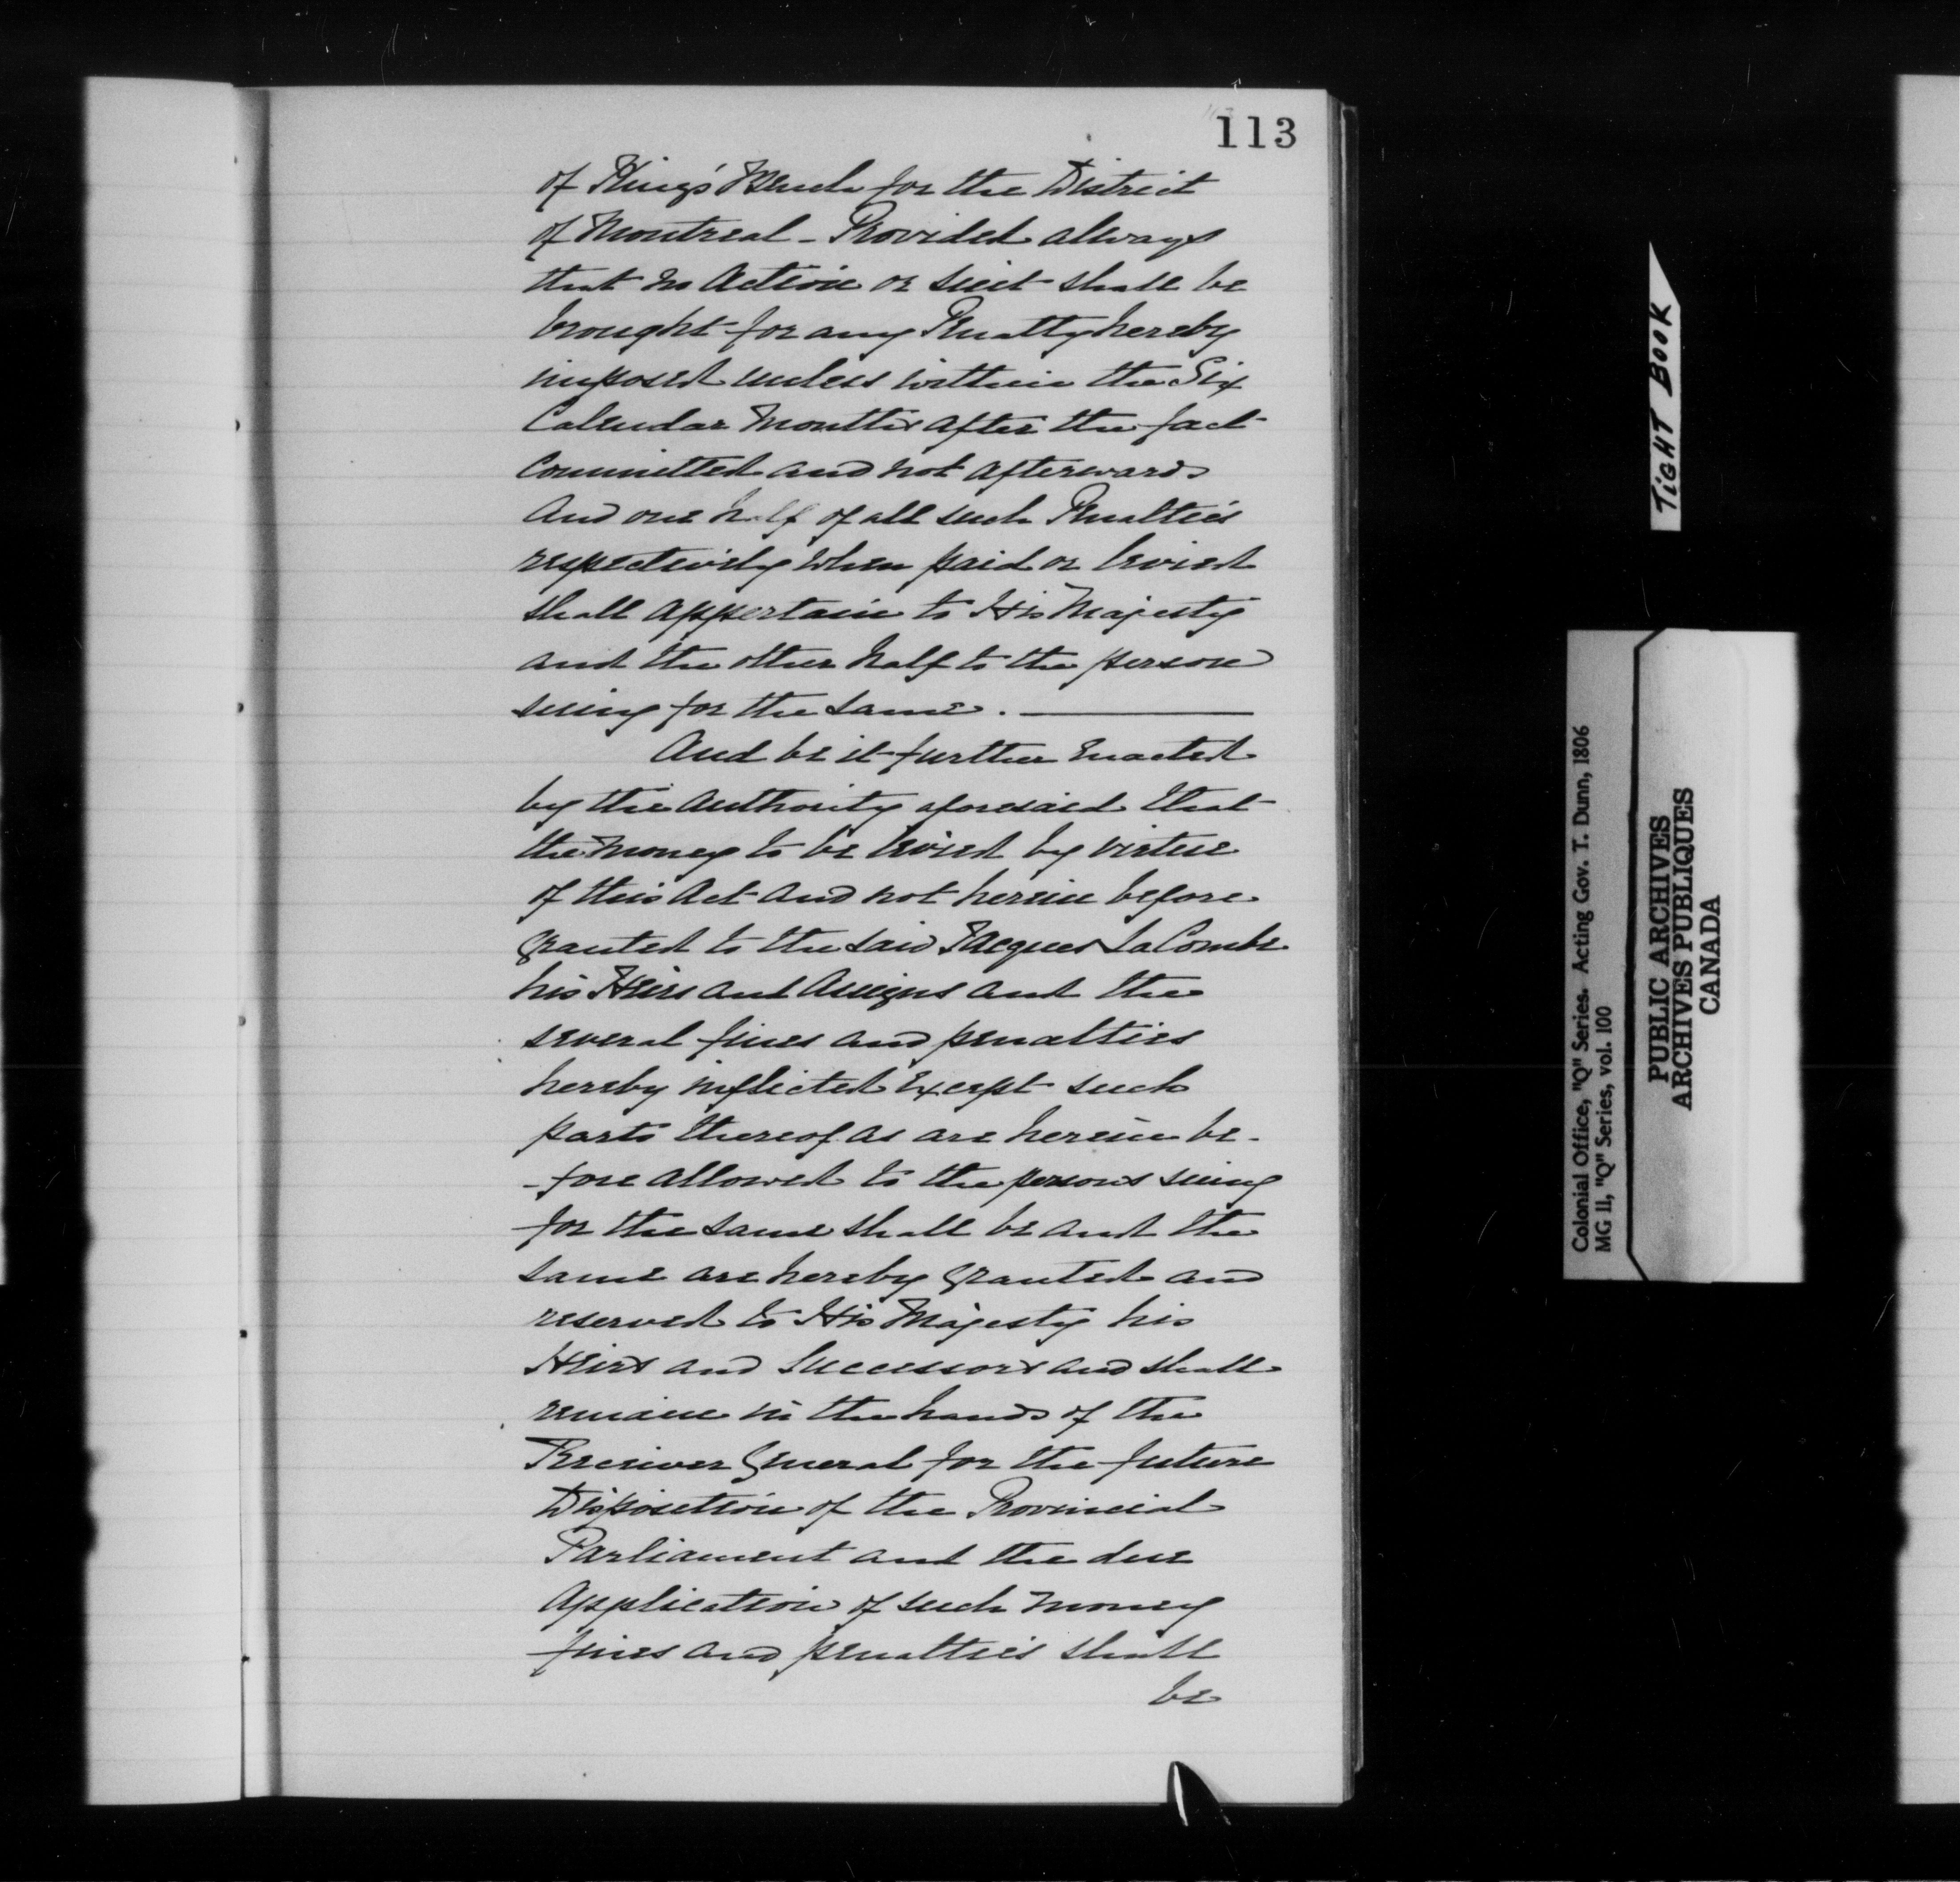 113
of King's Bench for the District
of Montreal - Provided always
that no Action or suit shall be
brought for any Penalty hereby
imposed unless within the Six
Calendar Months after the fact
Committed and not afterwards
And one half of all such Penalties
respectively when paid or levied
shall appertain to His Majesty
and the other half to the person
suing for the same.
And be it further Enacted
by the Authority aforesaid that
the Money to be levied by virtue
of this Act and not herein before
granted to the said Jacques LaCombe
his Heirs and Assigns and the
several fines and penalties
hereby inflicted Except such
parts thereof as are herein be-
-fore allowed to the persons suing
for the same shall be and the
same are hereby granted and
reserved to His Majesty his
Heirs and Successors and shall
remain in the hands of the
Receiver General for the future
Disposition of the Provincial
Parliament and the due
Application of such money
fines and penalties shall
be
TIGHT BOOK
Colonial Office, "Q" Series. Acting Gov. T. Dunn, 1806
MG 11, "Q" Series, vol. 100
PUBLIC ARCHIVES
ARCHIVES PUBLIQUES
CANADA